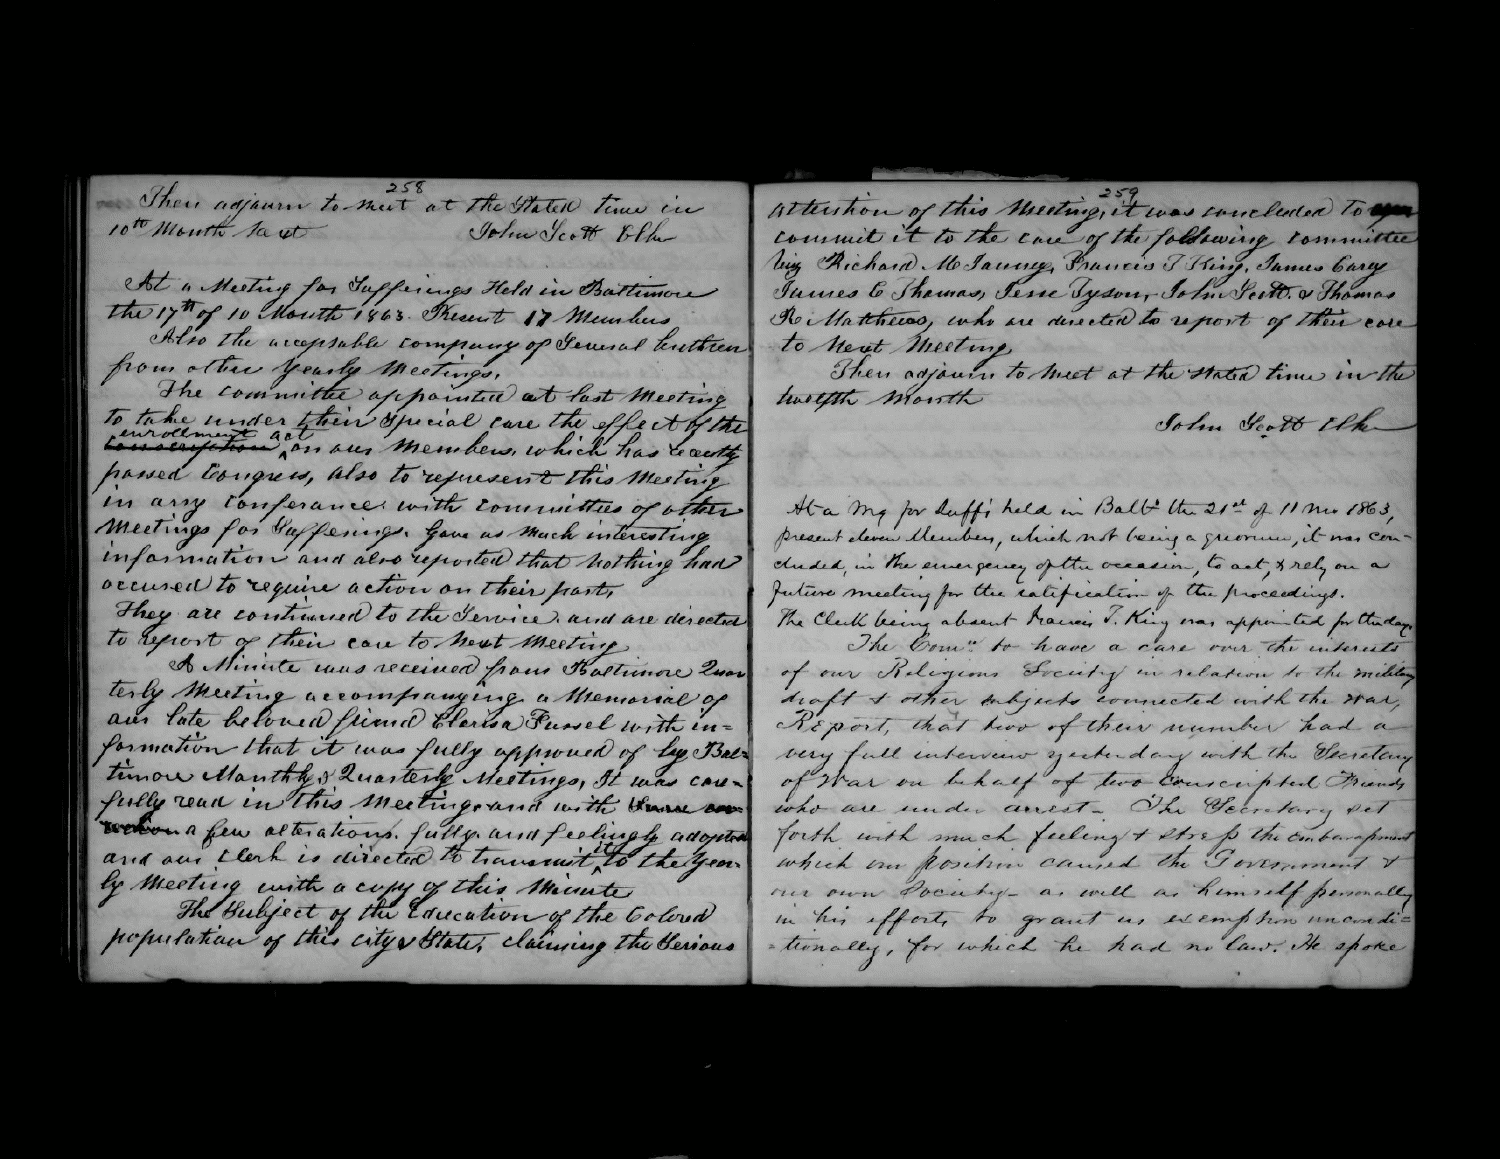 258
Then adjourn to meet at the Stated time in
10th Month Next John Scott Clk
At a Meeting for Sufferings Held in Baltimore
the 17th of 10 Month 1863. Present 17 Members
Also the acceptable company of Several brethren
from other Yearly Meetings.
The committee appointed at last Meeting
to take under their Special care the effect of the
enrollment act
conscription on our Members, which has recently
passed Congress, also to represent this Meeting
in any conferance with committies of other
Meetings for Sufferings. Gave us Much interesting
information and also reported that Nothing had
accused to require action on their part,
They are continued to the Service, and are directed
to report of their care to Next Meeting
A Minute was received from Baltimore Quar
terly Meeting accompanying a Memorial of
our late beloved friend Clarisa Fussel with in=
formation that it was fully approved of by Bal=
timore Monthly & Quarterly Meetings, It was care=
fully read in this Meeting and with
a few alterations. fully and feelingly adopted
and our Clerk is directed to transmit it to the Year-
ly Meeting with a copy of this Minute
The Subject of the Education of the Colored
population of this city & State, claiming the Serious
259
attention of this Meeting, it was concluded to
commit it to the care of the following committee
being Richard M Janney, Francis T King, James Carey
James C Thomas, Jesse Tyson, John Scott. & Thomas
R Matthews, who are directed to report of their care
to Next Meeting
Then adjourn to meet at the stated time in the
twelfth Month
John Scott Clk
At a Mg for Suffs held in Balto the 21st of 11 mo 1863,
present eleven Members, which not being a quorum, it was con-
cluded, in the emergency of the occasion, to act, & rely on a
future meeting for the ratification of the proceedings.
The Clerk being absent Francis T. King was appointed for the day.
The Comee to have a care over the interests
of our Religious Society in relation to the military
draft & other subjects connected with the War,
Report, that two of their number had a
very full interview yesterday with the Secretary
of War on behalf of two Conscripted Friends
who are under arrest - The Secretary set
forth with much feeling & stress the embarassment
which our position caused the Government &
our own Society - as well as himself personally
in his efforts to grant us exemption uncondi=
=tionally, for which he had no law. He spoke